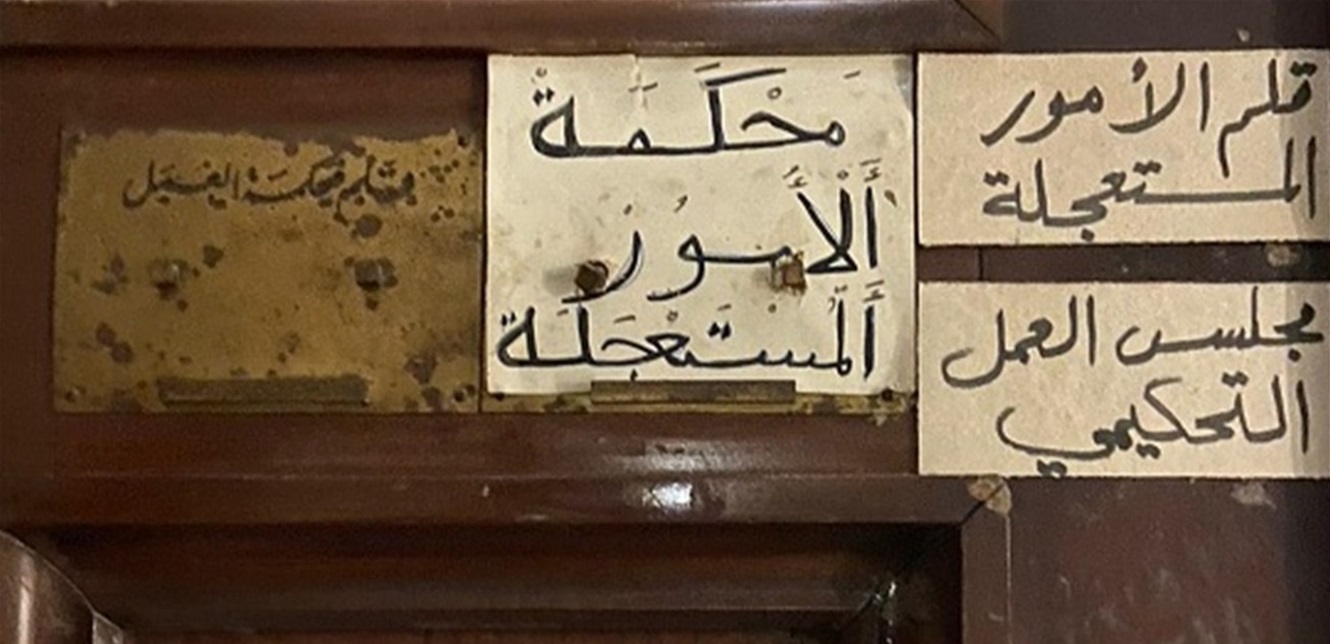 قلم الأمور
المستعجلة
مجلس العمل
التحكيمي
مَحْكَمَةْ
أَلْأَمُورْ
أَلْمُسْتَعْجَلَة
قلم محكمة